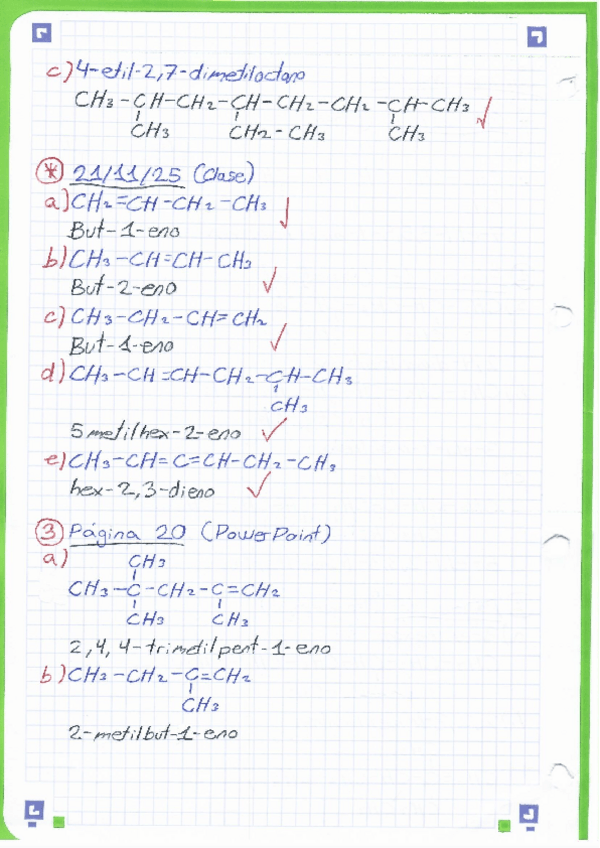 c) 4-etil-2,7-dimetiloctano
CH3-CH-CH2-CH-CH2-CH2-CH-CH3
CH3 CH2-CH3 CH3
* 21/11/25 (Clase)
a) CH2=CH-CH2-CH3
But-1-eno
b) CH3-CH=CH-CH3
But-2-eno
c) CH3-CH2-CH=CH2
But-1-eno
d) CH3-CH=CH-CH2-CH-CH3
CH3
5metilhex-2-eno
e) CH3-CH=C=CH-CH2-CH3
hex-2,3-dieno
3 Página 20 (PowerPoint)
a) CH3
CH3-C-CH2-C=CH2
CH3 CH3
2,4,4-trimetilpent-1-eno
b) CH3-CH2-C=CH2
CH3
2-metilbut-1-eno